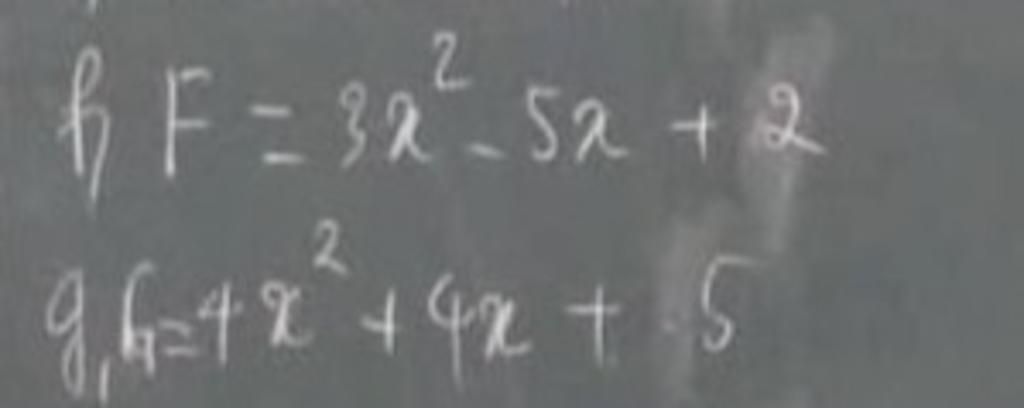 f, F = 3x² - 5x + 2
g, G = 4x² + 4x + 5